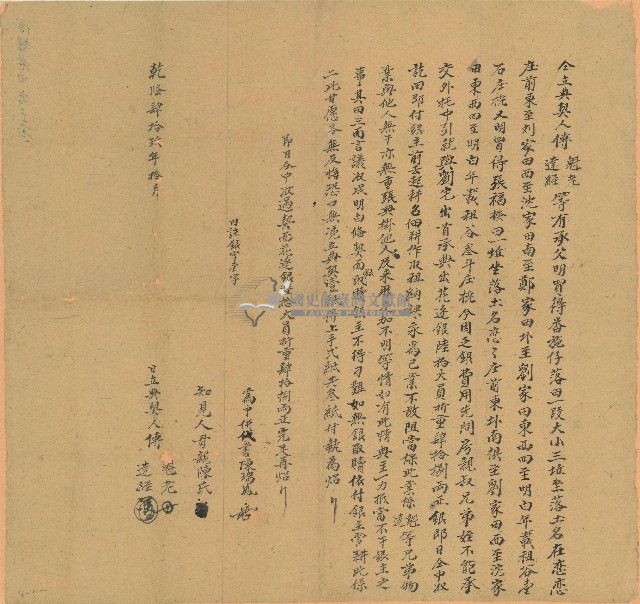 仝立典契人傅魁老達經等有承父明買得番施仔落田一段大小三坵坐落土名在恋恋
庄前東至刘家田西至沈家田南至鄭家田北至劉家田東西四至明白年載租谷壹
石庄桃又明買得張福榜田一坵坐落土名恋恋庄前東北南俱至劉家田西至沈家
田東西四至明白年載租谷叁斗庄桃今因乏銀費用先問房親叔兄弟姪不能承
交外托中引就與劉宅出首承典出花邊銀陸拾大員折重肆拾捌兩正銀即日仝中收
訖田即付銀主前去起耕召佃耕作收租納課永為己業不敢阻當保此業係魁達等兄弟物
業與他人無干亦無重張典掛他人及來歷交加不明等情如有此情典主一力抵當不干銀主之
事其田三面言議收成明白備契面銀取贖銀主不得刁難如無銀取贖依付銀主掌耕此係
二比甘愿各無反悔恐口無憑立典契壹紙併上手弍紙共叁紙付執為炤
即日仝中收過契面花邊銀陸拾大員折重肆拾捌兩正完足再炤
內註銀字壹字
為中併代書陳瑞為
知見人母親陳氏
乾隆肆拾玖年拾月 日立典契人傅魁老達經
國史館臺灣文獻館
TAIWAN HISTORICA